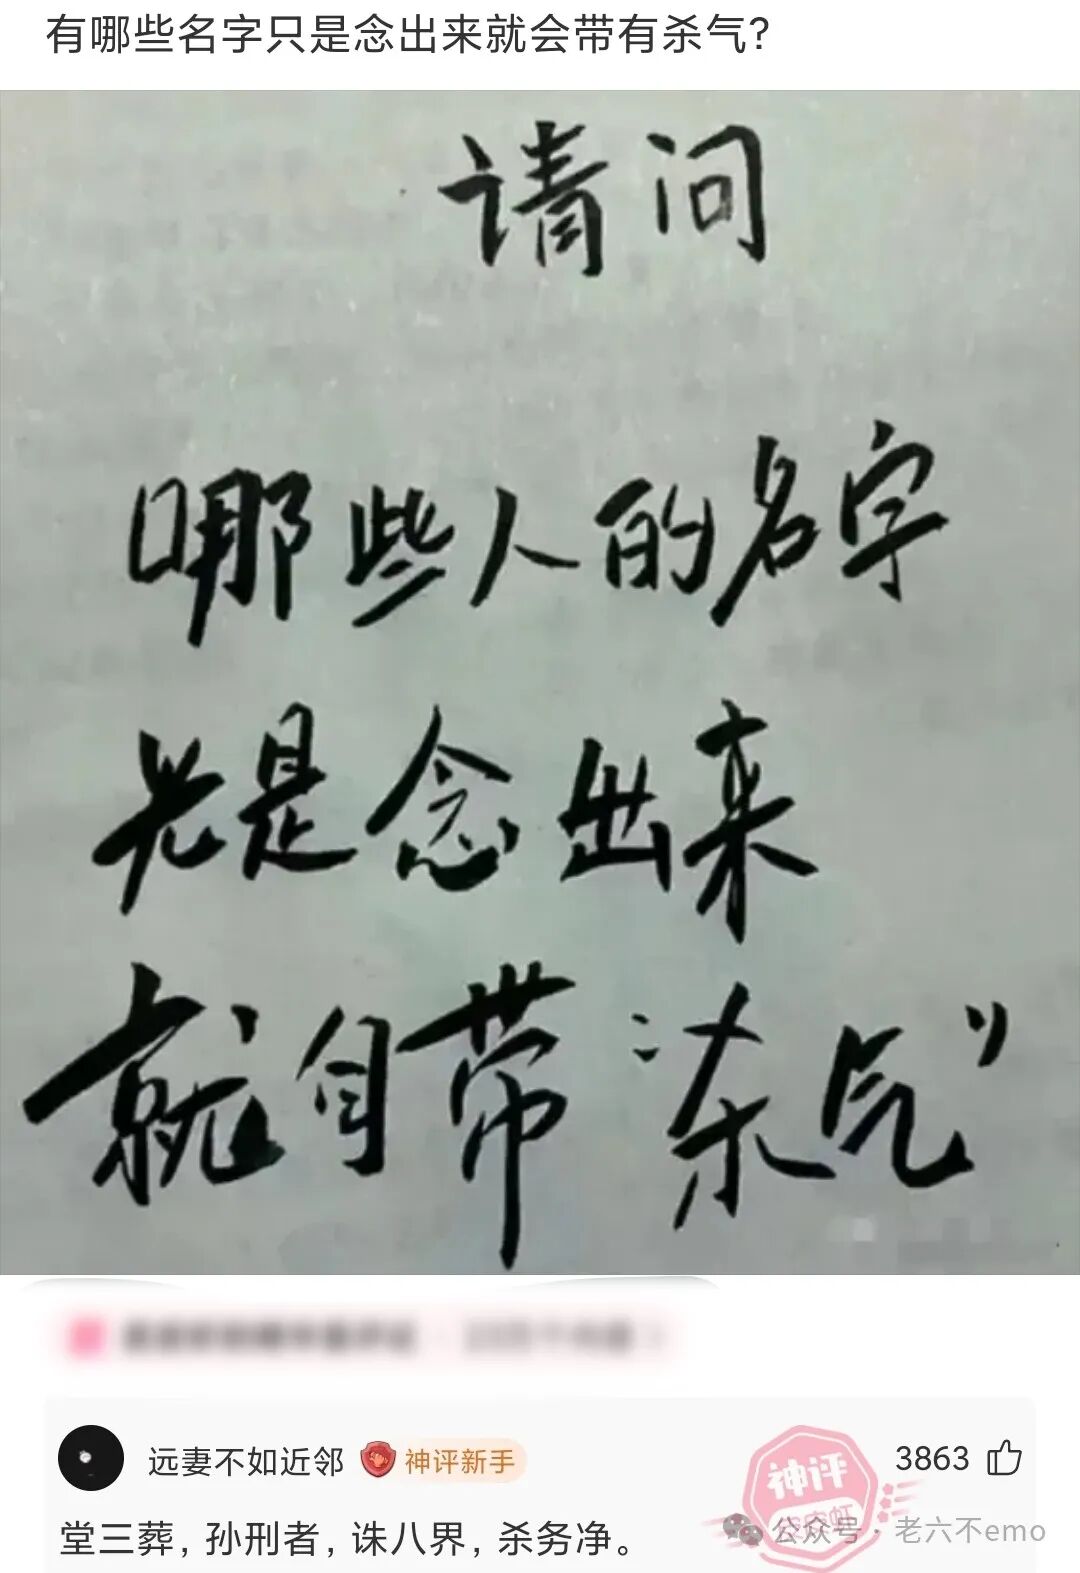 有哪些名字只是念出来就会带有杀气?
请问
哪些人的名字
光是念出来
就自带“杀气”
远妻不如近邻 神评新手
3863
神评
堂三葬, 孙刑者, 诛八界, 杀务净。
公众号 · 老六不emo